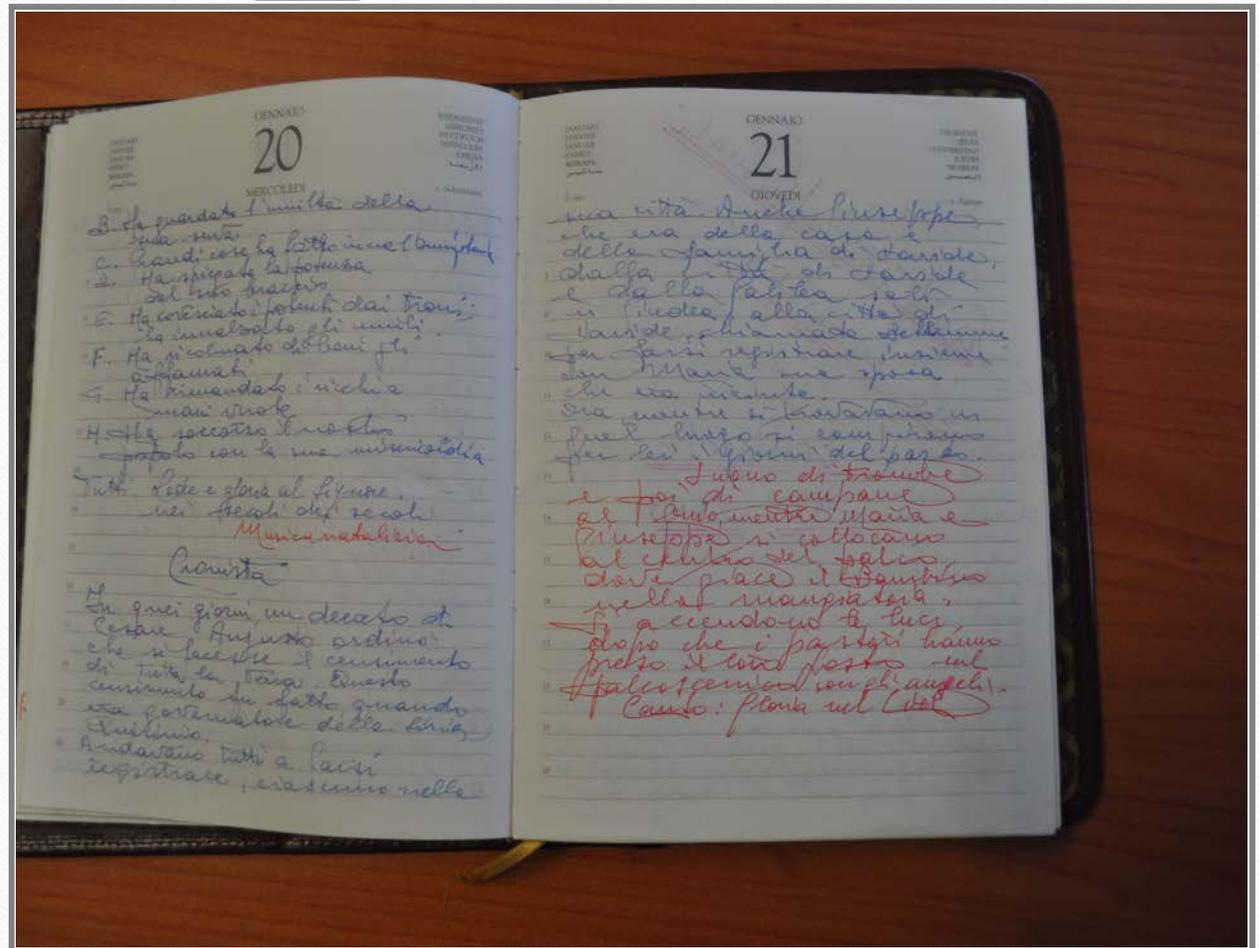 GENNAIO
20
MERCOLEDÌ
B. Ha guardato l'umiltà della
sua serva
C. Grandi cose ha fatto in me l'Onnipotente
D. Ha spiegato la potenza
del suo braccio
E. Ha rovesciato i potenti dai troni;
ha innalzato gli umili.
F. Ha ricolmato di beni gli
affamati
G. Ha rimandato i ricchi a
mani vuote
H. Ha soccorso il nostro
popolo con la sua misericordia
Tutti Lode e gloria al Signore.
nei secoli dei secoli
Musica natalizia
Cronista
In quei giorni, un decreto di
Cesare Augusto ordinò
che si facesse il censimento
di tutta la terra. Questo
censimento fu fatto quando
era governatore della Siria
Quilinio.
Andavano tutti a farsi
registrare, ciascuno nella
GENNAIO
21
GIOVEDÌ
sua città. Anche Giuseppe,
che era della casa e
della famiglia di Davide,
dalla città di
e dalla Galilea salì
in Giudea, alla città di
Davide, chiamata Betlemme
per farsi registrare, insieme
con Maria sua sposa
che era incinta.
Ora mentre si trovavano in
quel luogo si compirono
per lei i giorni del parto.
Suono di trombe
e poi di campane
al mentre Maria e
Giuseppe si collocano
al centro del palco,
dove giace il Bambino
nella mangiatoia.
Si accendono le luci,
dopo che i pastori hanno
preso il loro posto sul
palcoscenico con gli angeli.
Canto: Gloria nel Cieli